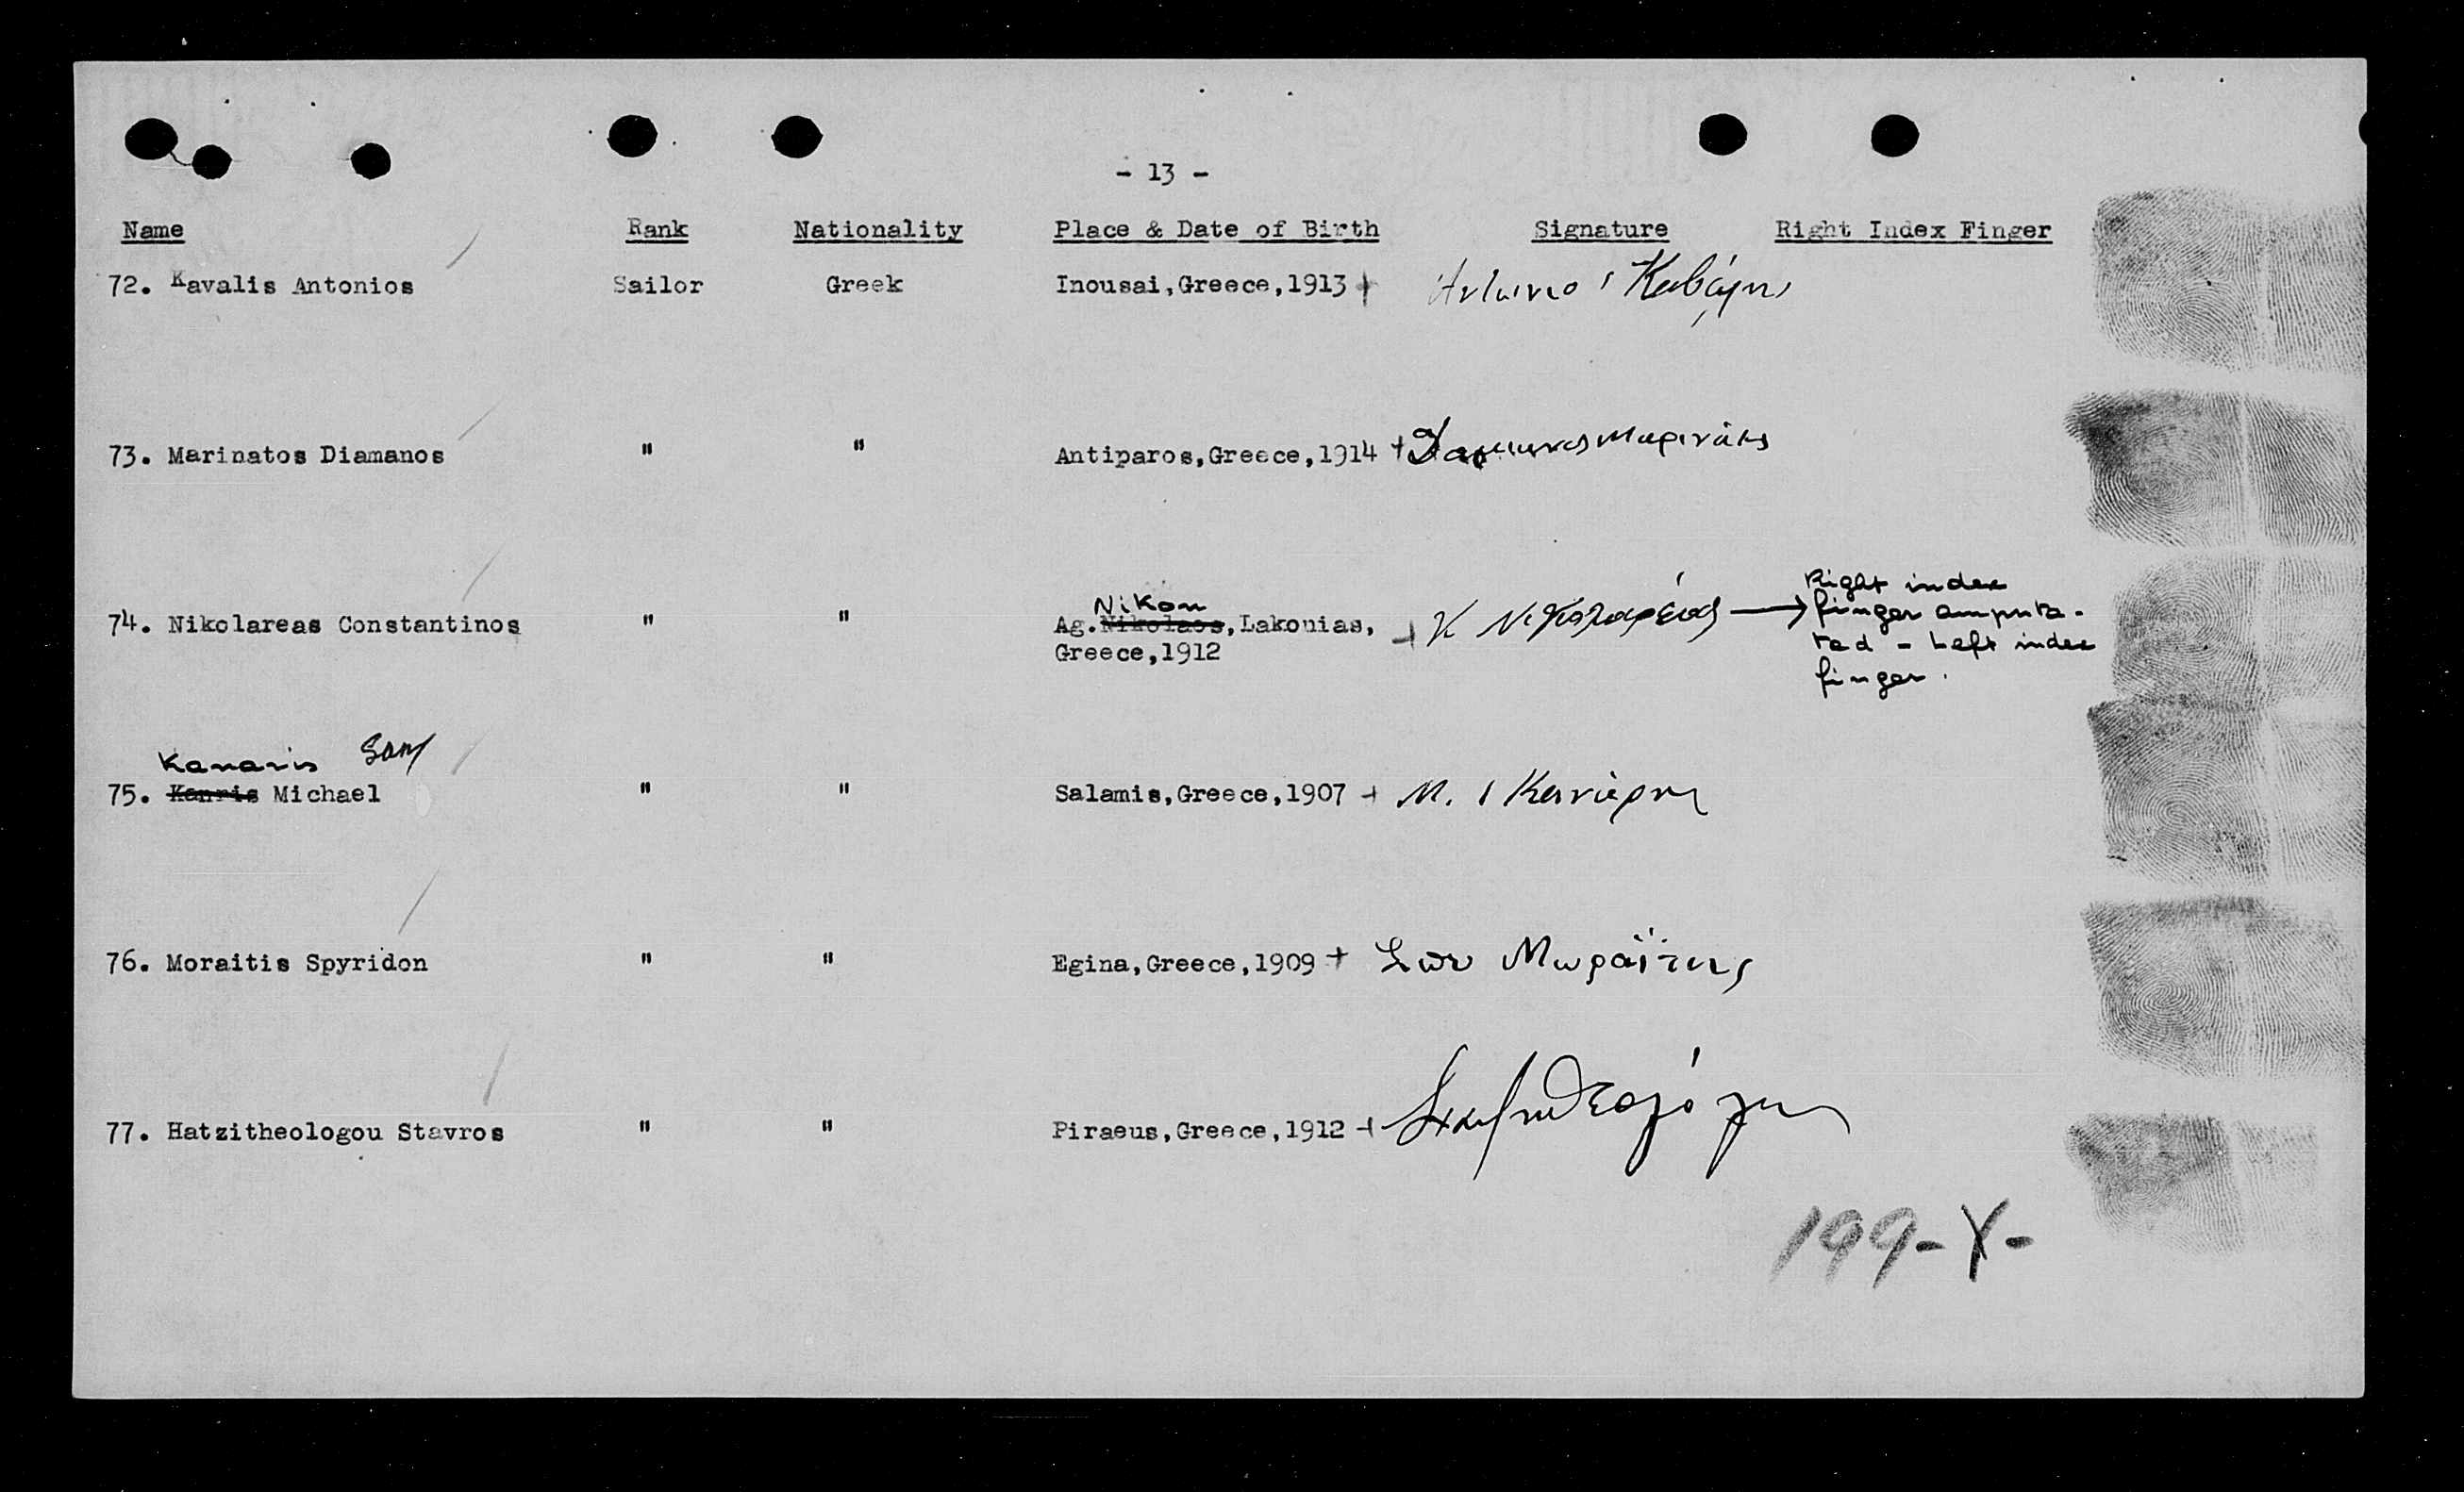 - 13 -
Name Rank Nationality Place & Date of Birth Signature Right Index Finger
72. Kavalis Antonios Sailor Greek Inousai, Greece, 1913 + Αντώνιος Καβάλης
73. Marinatos Diamanos " " Antiparos, Greece, 1914 + Μαρινάτος
Nikon
74. Nikolareas Constantinos " " Ag. Nikolaos, Lakonias, + Κ Νικολαρέας → Right index
Greece, 1912
finger amputa-
ted - Left index
finger.
Kanaris
75. Kanris Michael " " Salamis, Greece, 1907 + Μ. Κανάρης
76. Moraitis Spyridon " " Egina, Greece, 1909 + Σπυ Μωραΐτης
77. Hatzitheologou Stavros " " Piraeus, Greece, 1912 +
199-X-